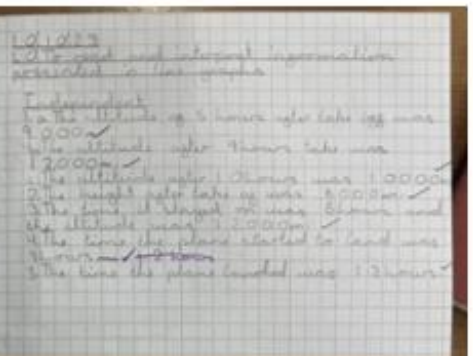 LO To read and interpret information
presented in line graphs
Independent
1.a The altitude of 3 hours after take off was
9000m
The altitude after 9 hours was
12000m
1. The altitude after 10 hours was 10000m
2. The height after take of was
3. The time it stayed was hours and
the altitude was 12000m
4. The time the plane started to land was
9 hours
5. The time the plane landed was 13 hours